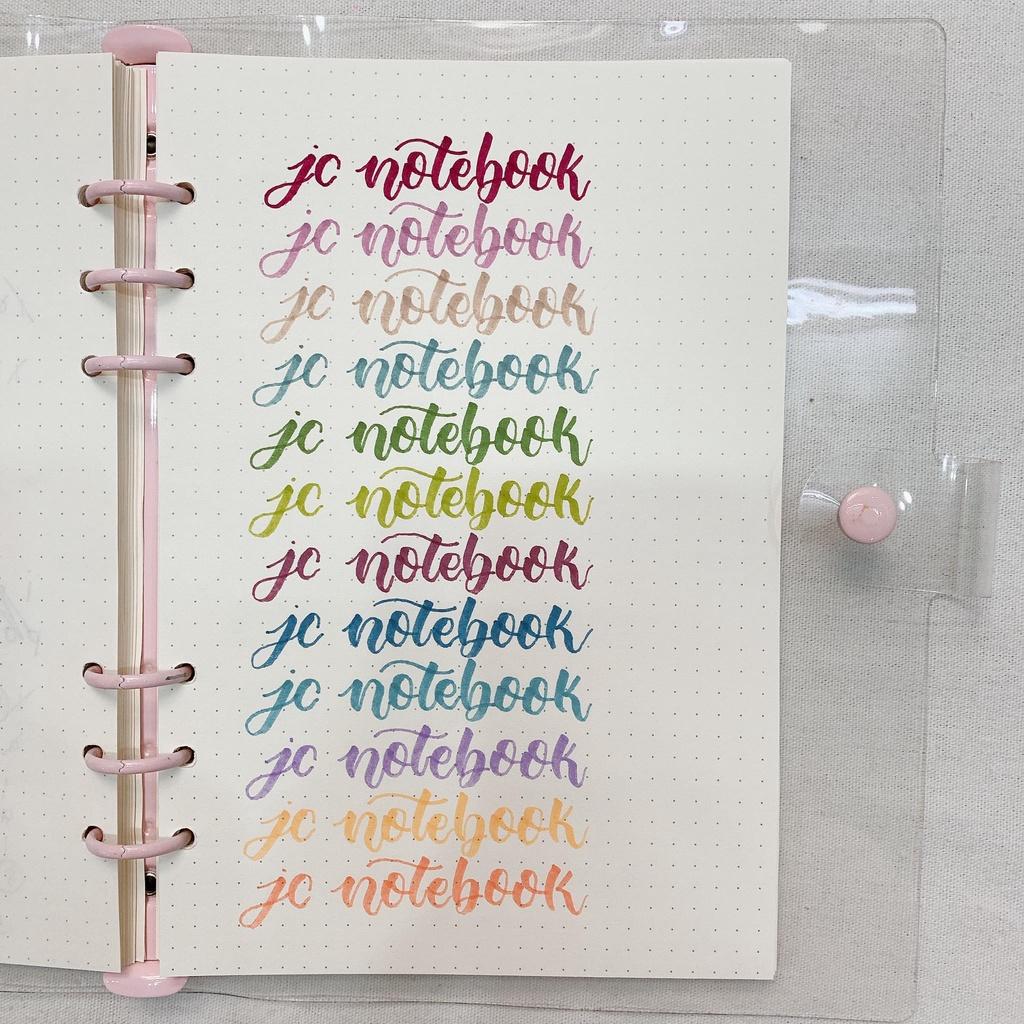 jc notebook
jc notebook
jc notebook
jc notebook
jc notebook
jc notebook
jc notebook
jc notebook
jc notebook
jc notebook
jc notebook
jc notebook